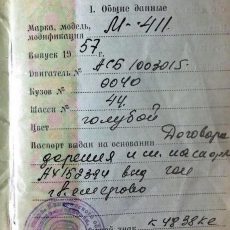 I. Общие данные
Марка, модель, М-411
модификация
Выпуск 1957 г.
Двигатель № АСБ 1003015
Кузов № 0040
Шасси № 44
Цвет голубой
Паспорт выдан на основании Договора
дарения и
АУ152394 выд
г Кемерово
к 4838 ке